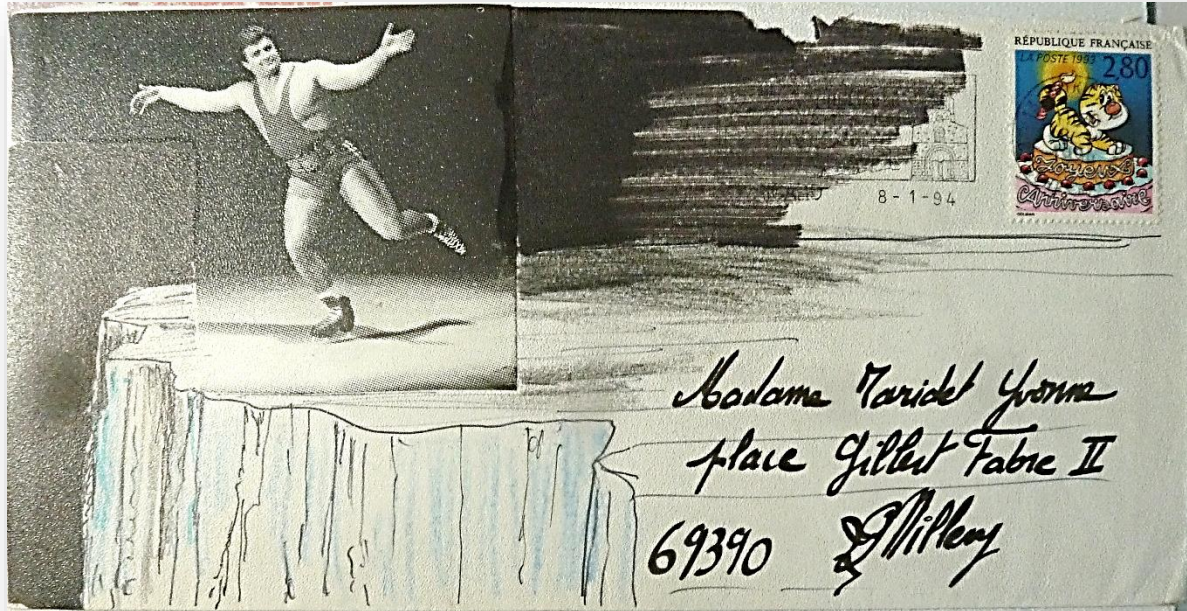 RÉPUBLIQUE FRANÇAISE
LA POSTE 1993 2,80
Joyeux
Anniversaire
8-1-94
Madame Maridet Yvonne
place Gilbert Fabre II
69390 Millery